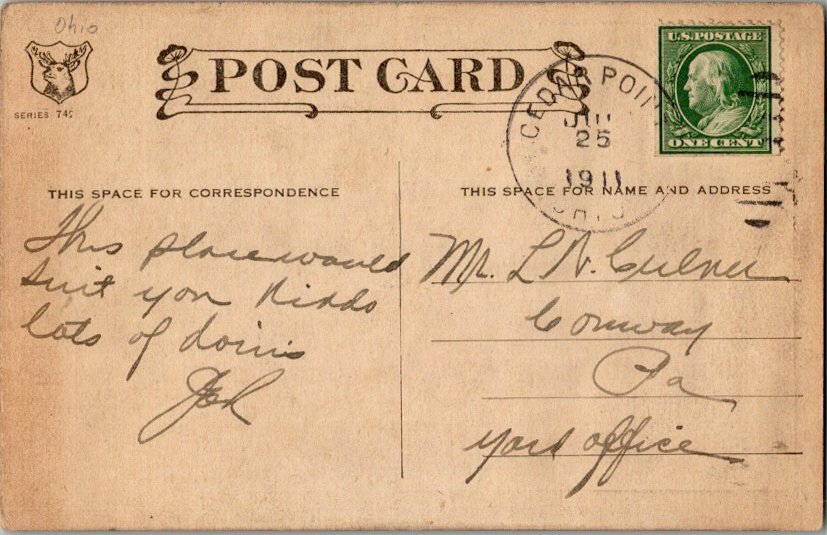 Ohio
SERIES 745
POST CARD
U.S. POSTAGE
ONE CENT
CEDAR POINT
25
1911
OHIO
THIS SPACE FOR CORRESPONDENCE
THIS SPACE FOR NAME AND ADDRESS
This place would
suit you Kiddo
lots of doins
Mr. L. N.
Conway
Pa
yard office